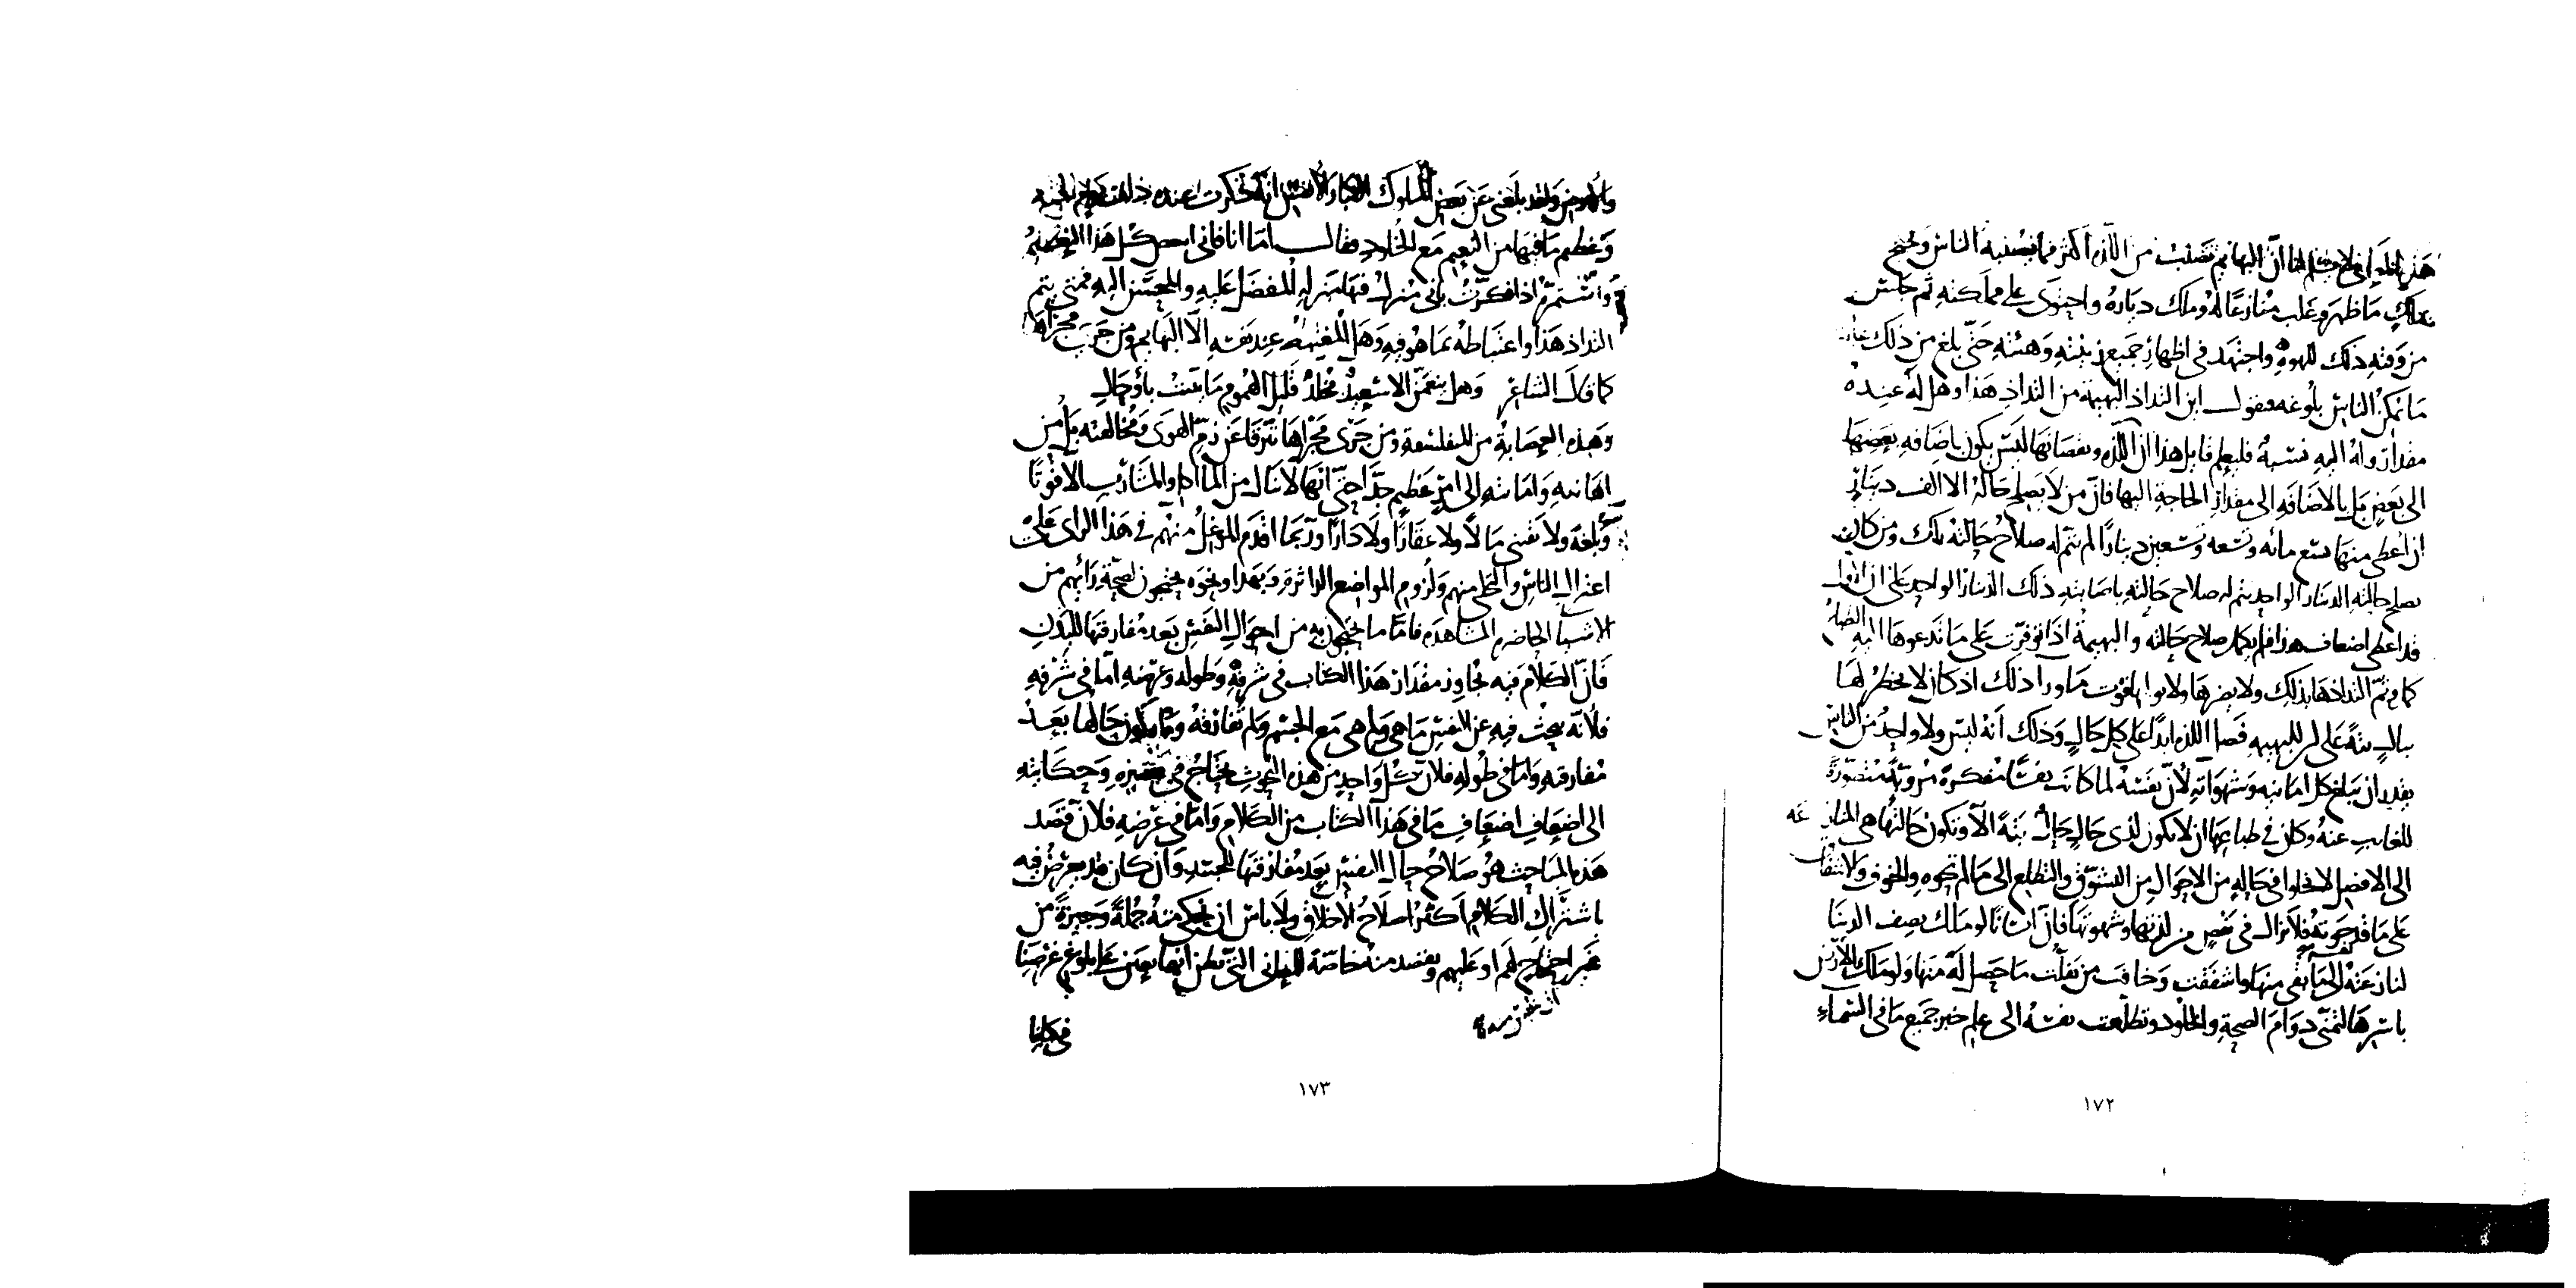 هذه الخلة فلا يشك لها أن البهايم تصيب من اللذة أكثر مما يصيبه الناس ويحتج
بملك ما ظهر وغلب منازعا له وملك دياره واحتوى على مملكته ثم جلس
من وقته ذلك للهوه واجتهد في اظهار جميع زينته وهيئته حتى بلغ من ذلك غاية
ما يمكن الناس بلوغه فيقول اين التذاذ البهيمة من التذاذ هذا وهل له عنده
مقدار وله اليه نسبة فليعلم قايل هذا ان اللذة ونقصانها ليس يكون باضافه بعضها
الى بعض بل بالاضافه الى مقدار الحاجة اليها فان من لا يصلح حالته الا الف دينار
ان اعطى منها تسع مائه وتسعه وتسعين دينارا لم يتم له صلاح حالته تلك ومن كان
يصلح حالته الدينار الواحد يتم له صلاح حالته باصابته ذلك الدينار الواحد على ان الاول
قد اعطى اضعاف هذا فلم يكمل صلاح حالته والبهيمة اذا توفرت على ما تدعوها اليه الطباع
كمل وتم التذاذها بذلك ولا يضرها ولا يؤلمها فوت ما ورا ذلك اذ كان لا يخطر لها
ببال بتة على ان للبهيمه فضل اللذه ابدا على كل حال وذلك انه ليس ولا واحد من الناس
يقدر ان يبلغ كل امانيه وشهواته لأن نفسه لما كانت نفسا مفكرة مروية متصورة
للغايب عنه وكان في طباعها ان لا يكون لذي حال حال بتة الا وتكون حالتها هي المنازعه
الى الافضل لا يخلوا في حاله من الاحوال من التشوق والتطلع الى ما لم تحوه والخوف ولاشفاق
على ما قد حوته فلا تزال في نغص من لذتها وشهوتها فان انسانا لو ملك نصف الدنيا
لنازعته نفسه الى ما بقى منها واشفقت وخافت من تفلت ما حصل له منها ولو ملك الارض
باسرها لتمنى دوام الصحة والخلود وتطلعت نفسه الى علم خبر جميع ما في السماء
١٧٢
والارض ولقد بلغني عن بعض الملوك الكبار الانفس انه ذكرت عنده ذات يوم الجنه
وعظم ما فيها من النعيم مع الخلود فقال اما انا فانى انغص كل هذا النعيم
وأستمره اذا فكرت بانى منزل فيها منزلة المفضل عليه والمحسن اليه فمتى يتم
التذاذ هذا واغتباطه بما هو فيه وهل المغتبط عند نفسه الا البهايم ومن جرى مجراها
كما قال الشاعر وهل ينعمن الا سعيد مخلد قليل الهموم ما يبيت بأوجال
وهذه العصابة من المتفلسفة ومن جرى مجراها تترقا عن ذم الهوى ومخالفته بل من
اهانته واماتته الى امر عظيم جدا حتى انها لا تنال من الماكل والمشارب الا قوتا
وبلغة ولا تقتنى مالا ولا عقارا ولا دارا وربما اقدم الموغل منهم في هذا الراى على
اعتزال الناس والتخلي منهم ولزوم المواضع الداثرة وبهذا ونحوه يحتجون لصحة رأيهم من
الاشيا الحاضره المشاهده فاما ما يحتجون به من احوال النفس بعد مفارقتها للبدن
فان الكلام فيه يجاوز مقدار هذا الكتاب في شرفه وطوله وعرضه اما في شرفه
فلأنه يبحث فيه عن النفس ما هي ولم هي مع الجسم ولم تفارقه وما يكون حالها بعد
مفارقته واما في طوله فلان كل واحد من هذه البحوث يحتاج في تفسيره وحكايته
الى اضعاف اضعاف ما في هذا الكتاب من الكلام واما في عرضه فلان قصد
هذه المباحث هو صلاح حال النفس بعد مفارقتها للجسد وان كان قد يعرض فيه
باشتراك الكلام اكثر اصلاح الاخلاق ولا باس ان نحكى منه جملة وجيزة من
غير احتجاج لهم او عليهم ونقصد منه خاصة المعانى التى نظن انها تعين على بلوغ غرضنا
في كتابنا
١٧٣